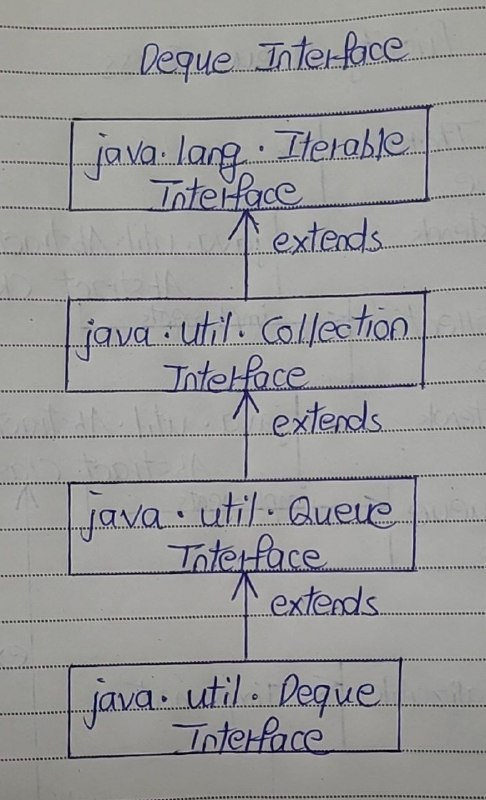 Deque Interface
java.lang.Iterable
Interface
extends
java.util.Collection
Interface
extends
java.util.Queue
Interface
extends
java.util.Deque
Interface